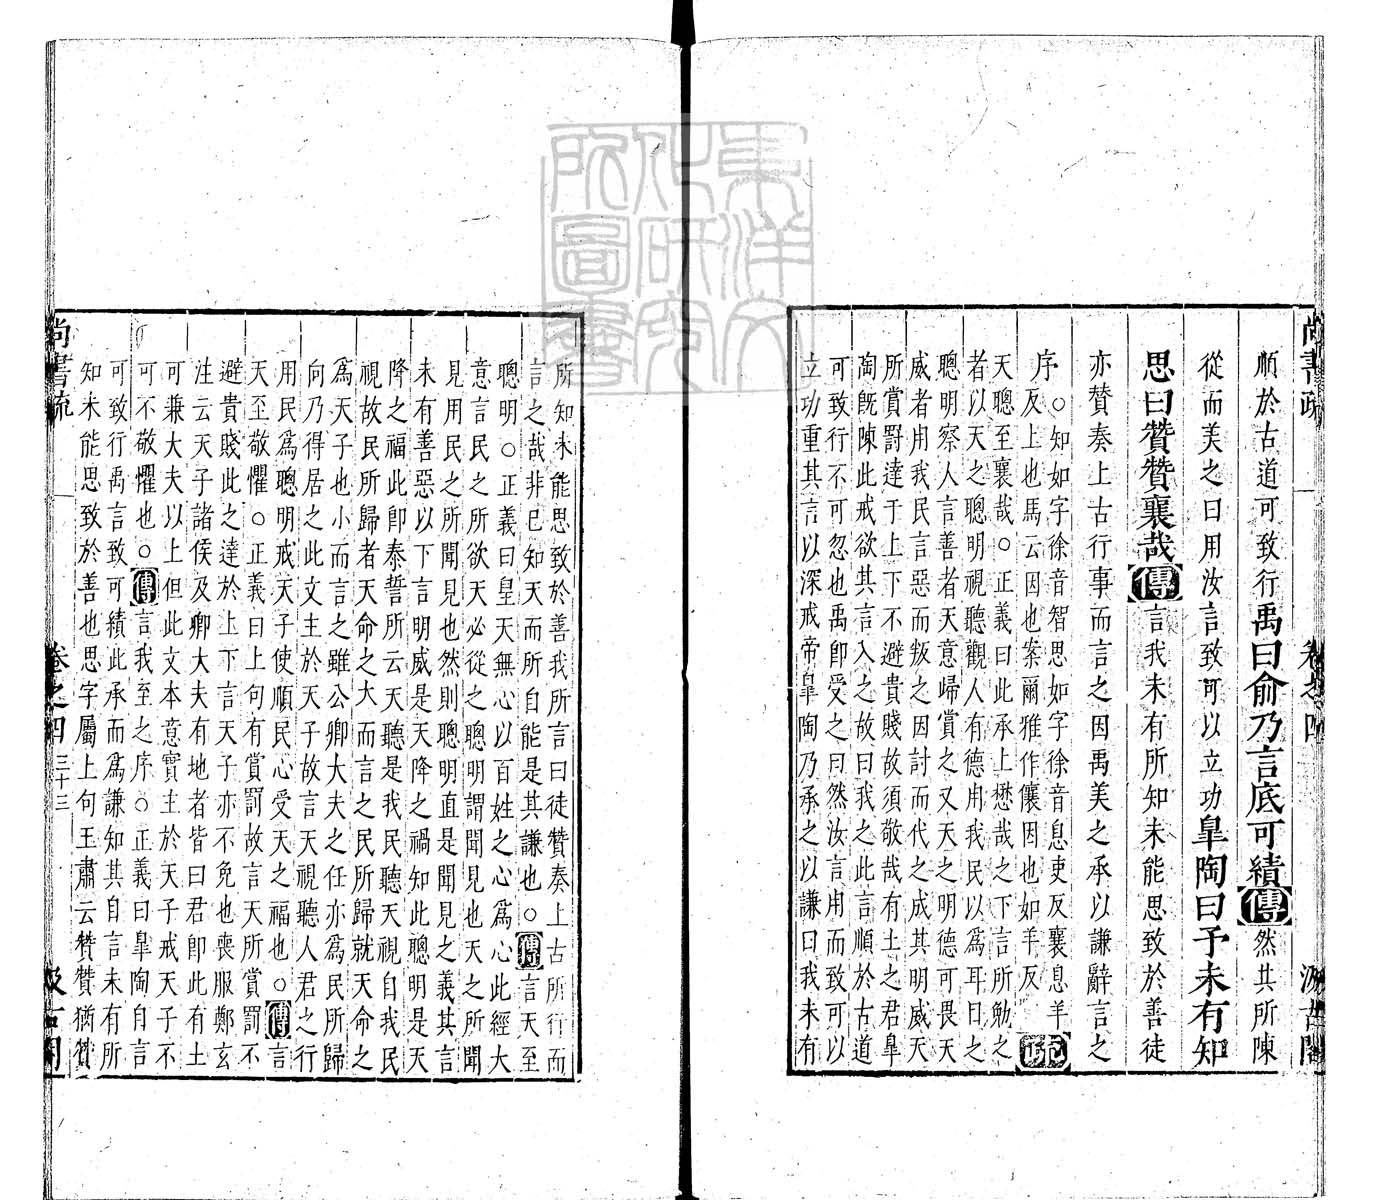 尚書疏 卷之四 汲古閣
順於古道可致行禹曰俞乃言底可績傳然其所陳
從而美之曰用汝言致可以立功皐陶曰予未有知
思曰贊贊襄哉傳言我未有所知未能思致於善徒
亦贊奏上古行事而言之因禹美之承以謙辭言之
序○知如字徐音智思如字徐音息吏反襄息羊
反上也馬云因也案爾雅作儴因也如羊反疏
天聰至襄哉○正義曰此承上懋哉之下言所勉之
者以天之聰明視聽觀人有德用我民以爲耳目之
聰明察人言善者天意歸賞之又天之明德可畏天
威者用我民言惡而叛之因討而代之成其明威天
所賞罰達于上下不避貴賤故須敬哉有土之君皐
陶既陳此戒欲其言入之故曰我之此言順於古道
可致行不可忽也禹即受之曰然汝言用而致可以
立功重其言以深戒帝皐陶乃承之以謙曰我未有
所知未能思致於善我所言曰徒贊奏上古所行而
言之哉非已知天而所自能是其謙也○傳言天至
聰明○正義曰皇天無心以百姓之心爲心此經大
意言民之所欲天必從之聰明謂聞見也天之所聞
見用民之所聞見也然則聰明直是聞見之義其言
未有善惡以下言明威是天降之禍知此聰明是天
降之福此即泰誓所云天聽是我民聽天視自我民
視故民所歸者天命之大而言之民所歸就天命之
爲天子也小而言之雖公卿大夫之任亦爲民所歸
向乃得居之此文主於天子故言天視聽人君之行
用民爲聰明戒天子使順民心受天之福也○傳言
天至敬懼○正義曰上句有賞罰故言天所賞罰不
避貴賤此之達於上下言天子亦不免也喪服鄭玄
注云天子諸侯及卿大夫有地者皆曰君即此有土
可兼大夫以上但此文本意實主於天子戒天子不
可不敬懼也○傳言我至之序○正義曰皐陶自言
可致行禹言致可績此承而爲謙知其自言未有所
知未能思致於善也思字屬上句王肅云贊贊猶贊
尚書疏 卷之四 三十三 汲古閣